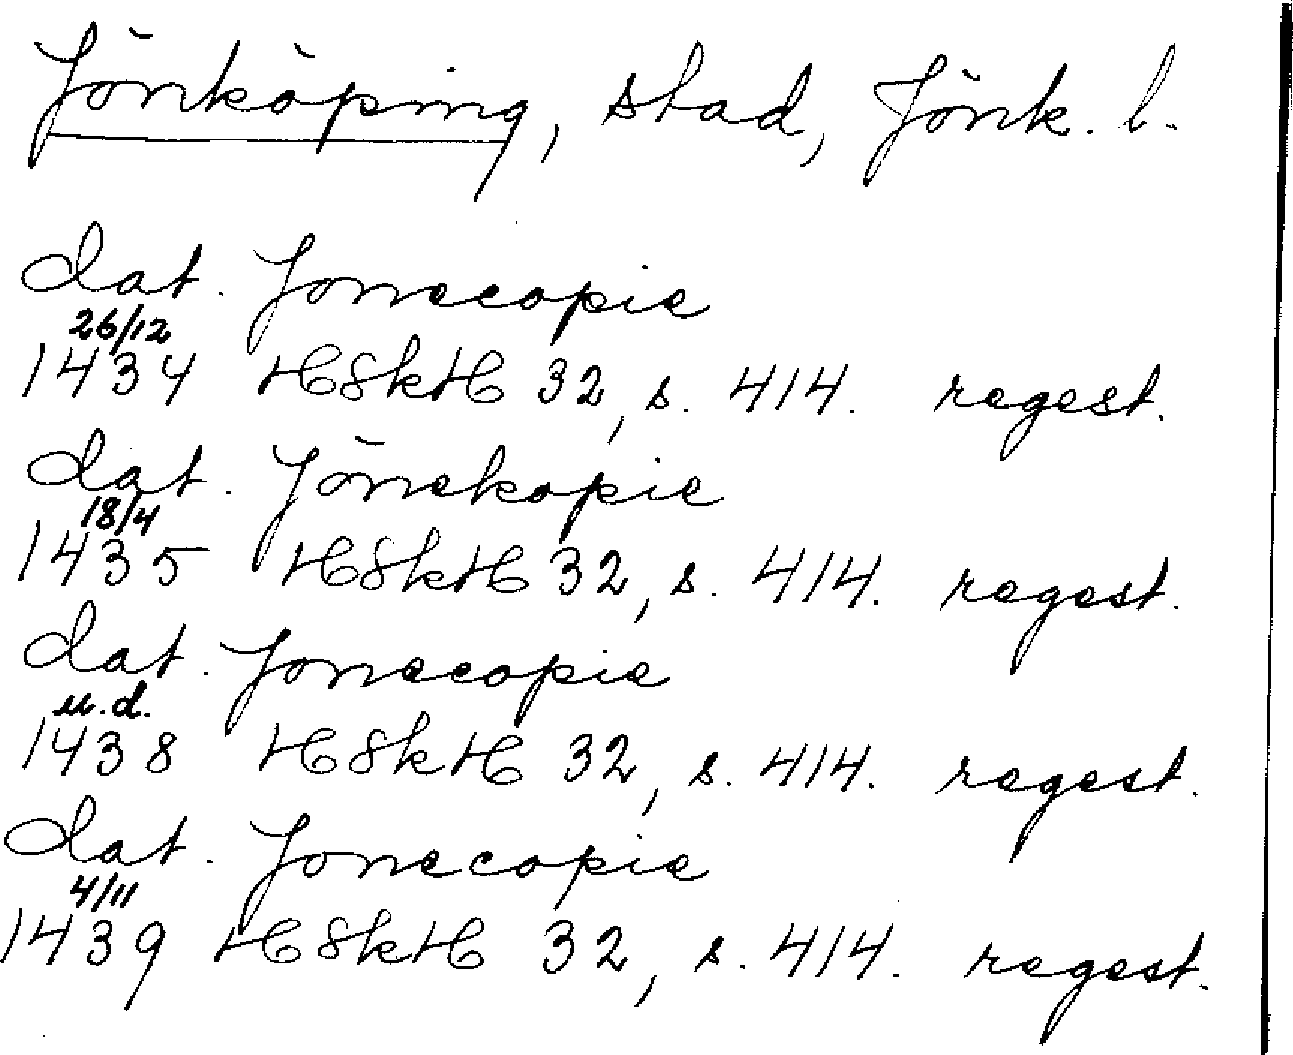 Jönköping, stad, Jönk. l.
dat. Jonecopie
26/12
1434 HSkH 32, s. 414. regest.
dat. Jönekopie
18/4
1435 HSkH 32, s. 414. regest.
dat. Jonecopie
u.d.
1438 HSkH 32, s. 414. regest.
dat. Jonecopie
4/11
1439 HSkH 32, s. 414. regest.